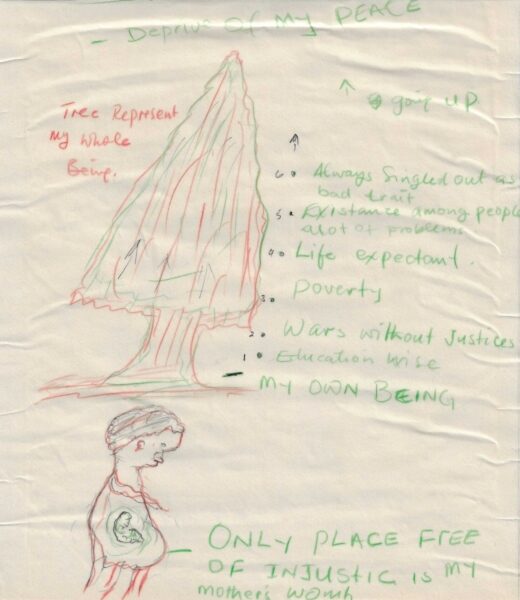 - Deprive Of My PEACE
↑ going UP
Tree Represent
My whole
Being.
6. Always Singled out as
bad trait
5. Existance among people
alot of problems
4. Life expectant.
3. Poverty
2. Wars without Justices
1. Education wise
- MY OWN BEING
- ONLY PLACE FREE
OF INJUSTIC is my
mother's womb